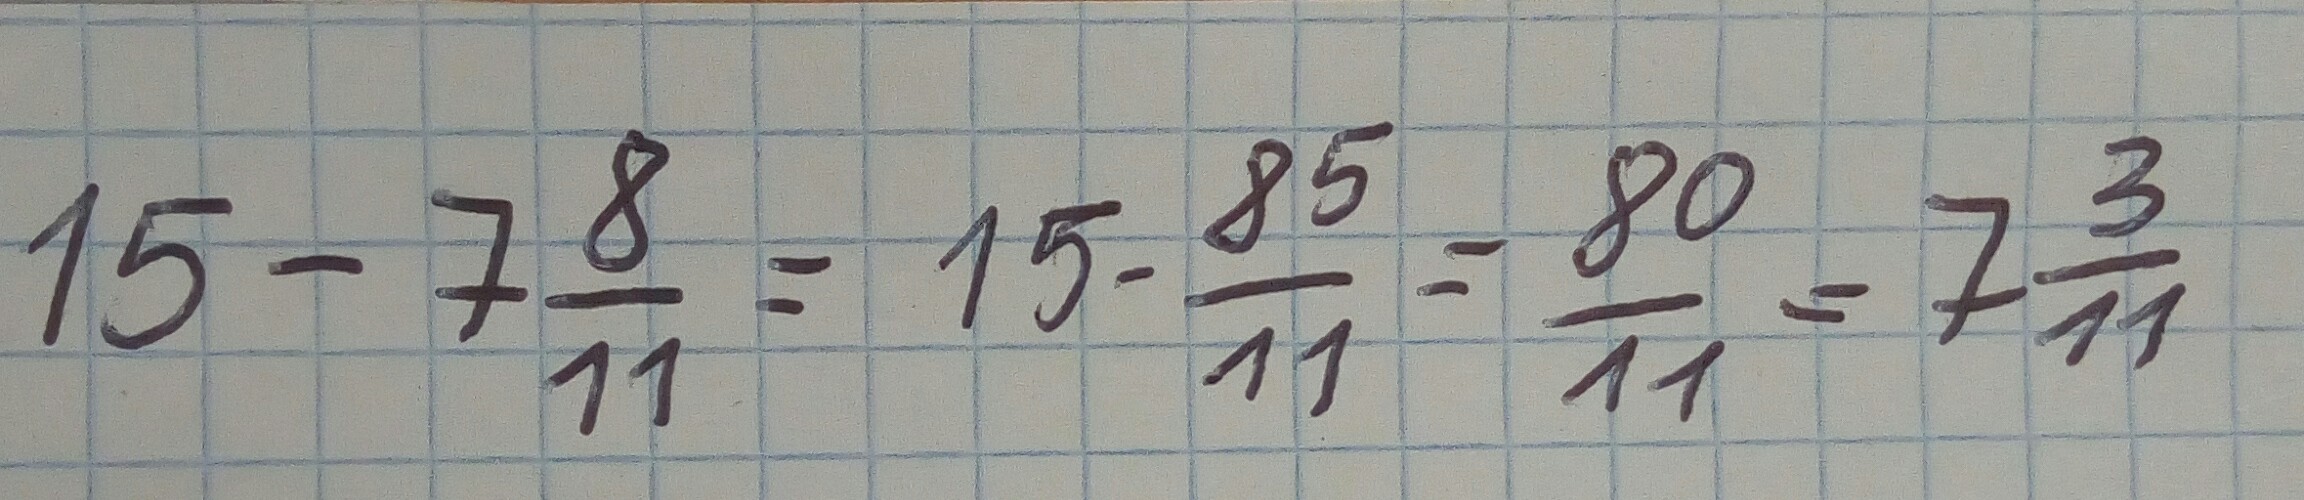 15 - 7 8/11 = 15 - 85/11 = 80/11 = 7 3/11